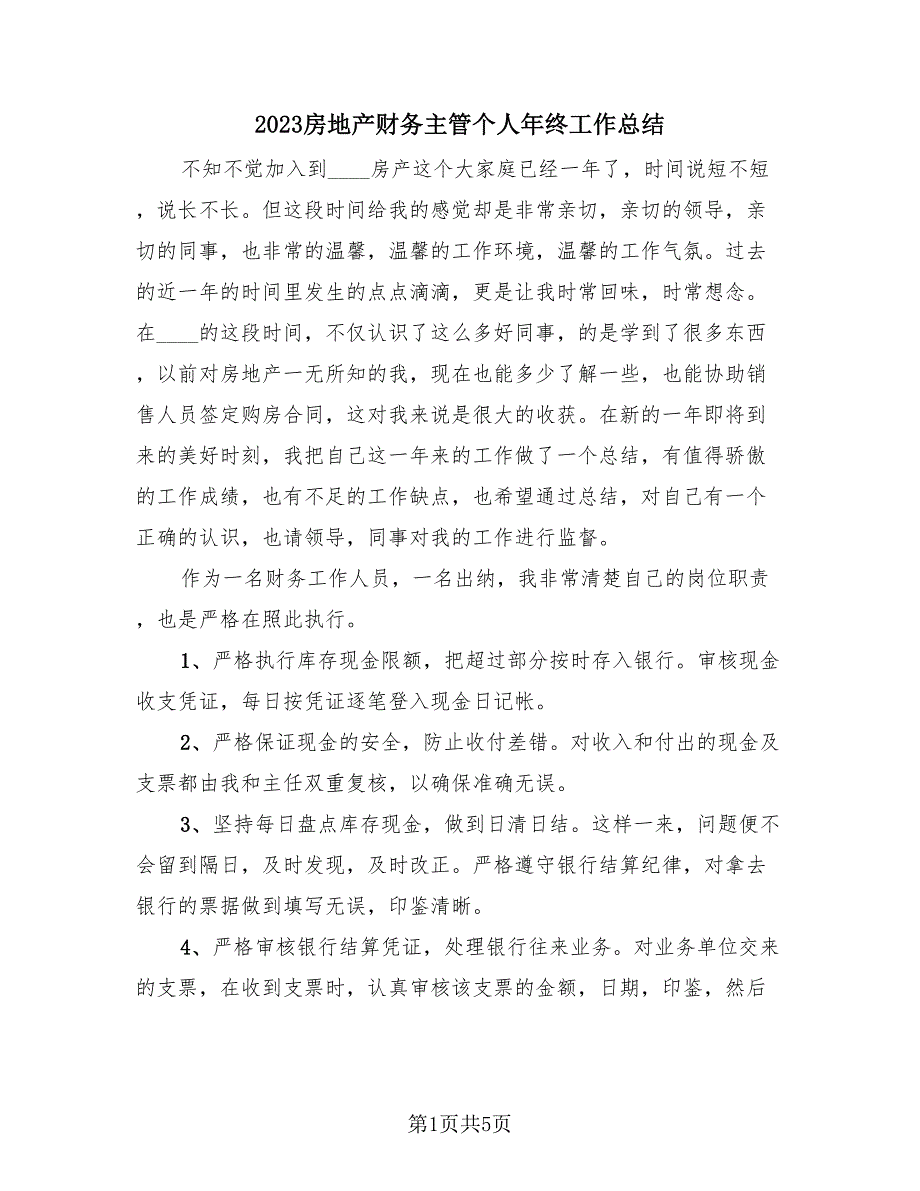 2023房地产财务主管个人年终工作总结
不知不觉加入到____房产这个大家庭已经一年了，时间说短不短
，说长不长。但这段时间给我的感觉却是非常亲切，亲切的领导，亲
切的同事，也非常的温馨，温馨的工作环境，温馨的工作气氛。过去
的近一年的时间里发生的点点滴滴，更是让我时常回味，时常想念。
在____的这段时间，不仅认识了这么多好同事，的是学到了很多东西
，以前对房地产一无所知的我，现在也能多少了解一些，也能协助销
售人员签定购房合同，这对我来说是很大的收获。在新的一年即将到
来的美好时刻，我把自己这一年来的工作做了一个总结，有值得骄傲
的工作成绩，也有不足的工作缺点，也希望通过总结，对自己有一个
正确的认识，也请领导，同事对我的工作进行监督。
作为一名财务工作人员，一名出纳，我非常清楚自己的岗位职责
，也是严格在照此执行。
1、严格执行库存现金限额，把超过部分按时存入银行。审核现金
收支凭证，每日按凭证逐笔登入现金日记帐。
2、严格保证现金的安全，防止收付差错。对收入和付出的现金及
支票都由我和主任双重复核，以确保准确无误。
3、坚持每日盘点库存现金，做到日清日结。这样一来，问题便不
会留到隔日，及时发现，及时改正。严格遵守银行结算纪律，对拿去
银行的票据做到填写无误，印鉴清晰。
4、严格审核银行结算凭证，处理银行往来业务。对业务单位交来
的支票，在收到支票时，认真审核该支票的金额，日期，印鉴，然后
第1页共5页